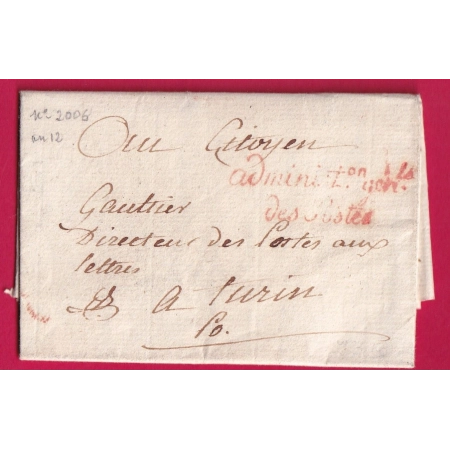 n° 2006
an 12
Au Citoyen
admini.on gen.le
des Postes
Gaultier
Directeur des Postes aux
lettres
A turin
Po.